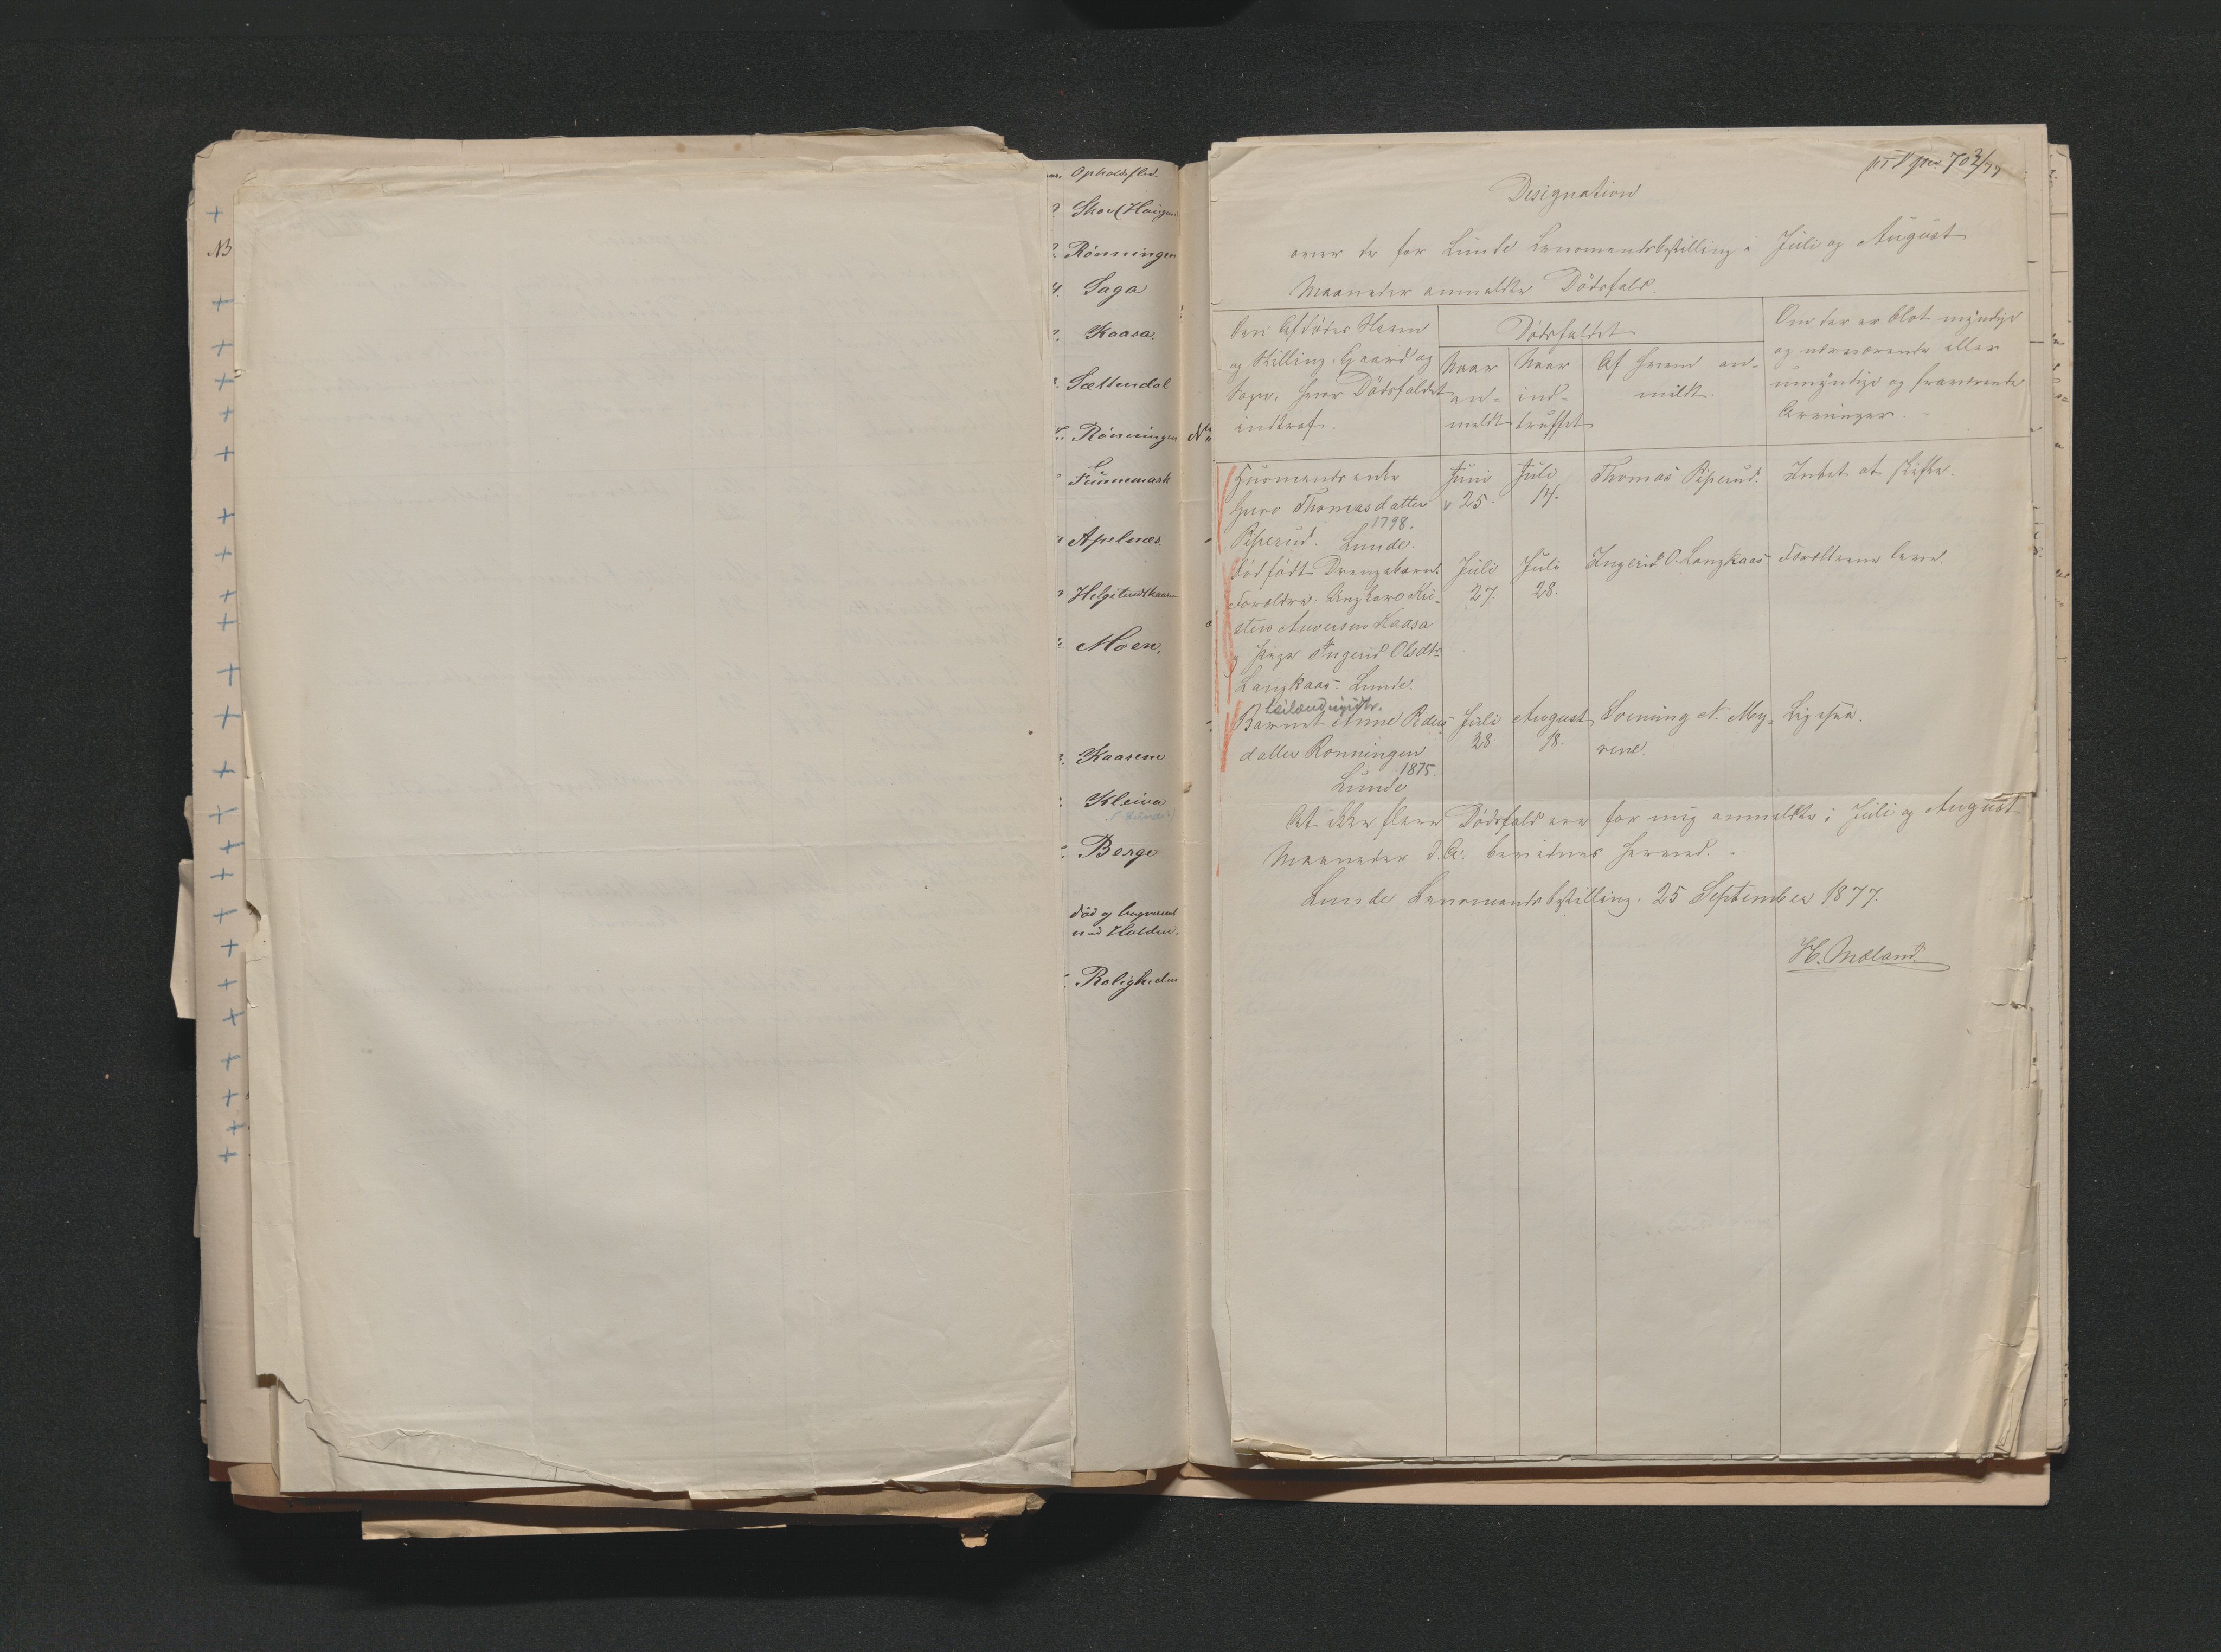 +
NB
+
+
+
+
+
+
+
+
+
+
+
+
+
+
+
+
+
+
+
+
+
Opholdssted.
Skoe (Haugen
Rönningen
Saga
Kaasa.
Sættendal
Rönningen
Apelnæs.
Moen,
Kaasene
Kleiva
Berge
død og begravet
ved Holden.
Roligheden
702/77
Designation
over de for Lunde Lensmandsbestilling i Juli og August
Maaneder anmeldte Dödsfald.
Den Afdödes Navn
og Stilling, Gaard og
Sogn, hvor Dödsfaldet
indtraf.
Dödsfaldet
Naar
an-
meldt
Naar
ind-
truffet
Af hvem an-
meldt.
Om der er blot myndige
og nærværende eller
umyndige og fraværende
Arvinger. –
Huusmandsenke
Guro Thomasdatter
1798.
Riperud. Lunde.
Juni
25.
Juli
14.
Thomas Riperud.
Intet at skifte.
Dødfödt Drengebarn.
Forældre: Ungkarl Kri-
sten Kaasa
og Pige Ingerid Olsdtr
Langkaas. Lunde.
Juli
27.
Juli
28.
Ingerid O. Langkaas
Forældrene leve.
Barnet Anne Peders-
datter Ronningen
1875.
Lunde
Juli
28.
August
18.
Ligesaa.
At ikke flere Dödsfald ere for mig anmeldte i Juli og August
Maaneder d. A. bevidnes herved. –
Lunde Lensmandsbestilling, 25 September 1877.
H. Moland.